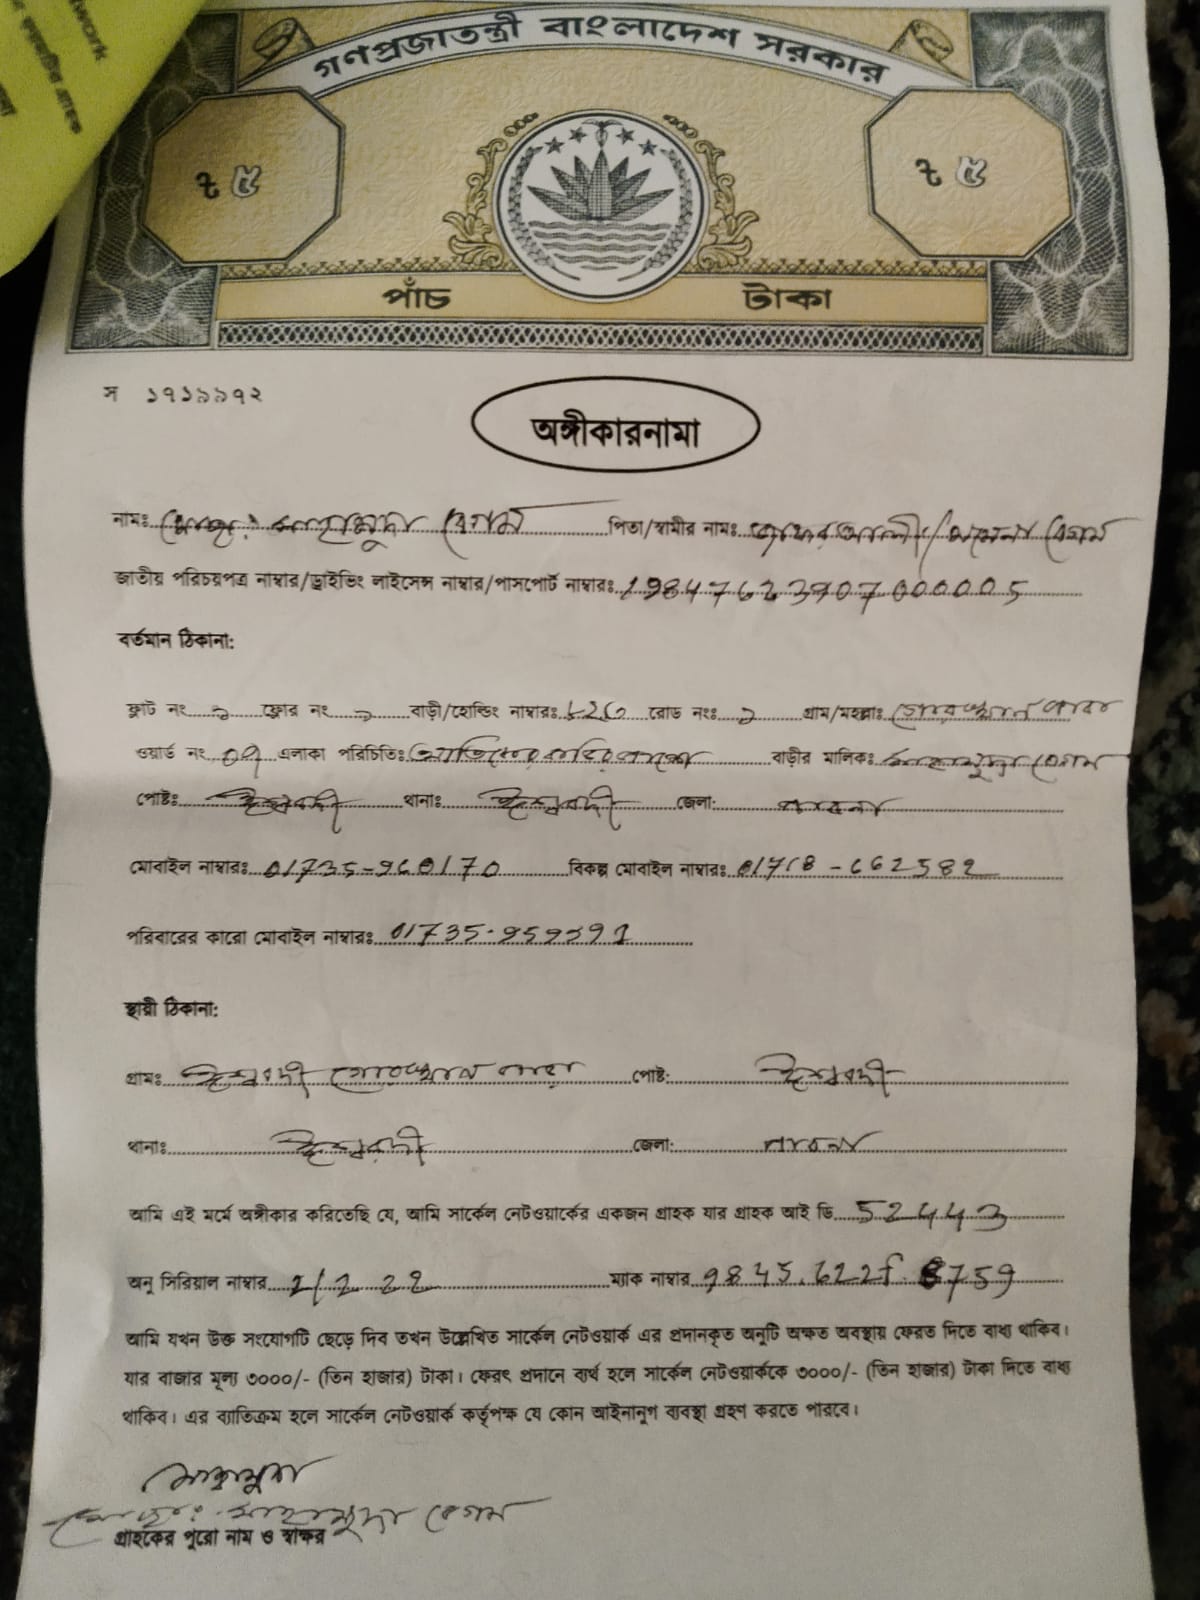 work
গণপ্রজাতন্ত্রী বাংলাদেশ সরকার
৳ ৫ ৳ ৫
পাঁচ টাকা
স ১৭১৯৯৭২
অঙ্গীকারনামা
নামঃ মোছা: মাহামুদা বেগম পিতা/স্বামীর নামঃ বেগম
জাতীয় পরিচয়পত্র নাম্বার/ড্রাইভিং লাইসেন্স নাম্বার/পাসপোর্ট নাম্বারঃ 19847623907000005
বর্তমান ঠিকানা:
ফ্লাট নং ১ ফ্লোর নং ১ বাড়ী/হোল্ডিং নাম্বারঃ রোড নংঃ ১ গ্রাম/মহল্লাঃ
ওয়ার্ড নং 09 এলাকা পরিচিতিঃ বাড়ীর মালিকঃ মাহামুদা বেগম
পোষ্টঃ ঈশ্বরদী থানাঃ ঈশ্বরদী জেলা: পাবনা
মোবাইল নাম্বারঃ 01735-960170 বিকল্প মোবাইল নাম্বারঃ 01718-662582
পরিবারের কারো মোবাইল নাম্বারঃ
স্থায়ী ঠিকানা:
গ্রামঃ ঈশ্বরদী পোষ্ট: ঈশ্বরদী
থানাঃ ঈশ্বরদী জেলা: পাবনা
আমি এই মর্মে অঙ্গীকার করিতেছি যে, আমি সার্কেল নেটওয়ার্কের একজন গ্রাহক যার গ্রাহক আই ডি 52443
অনু সিরিয়াল নাম্বার ম্যাক নাম্বার 9845.622f.8759
আমি যখন উক্ত সংযোগটি ছেড়ে দিব তখন উল্লেখিত সার্কেল নেটওয়ার্ক এর প্রদানকৃত অনুটি অক্ষত অবস্থায় ফেরত দিতে বাধ্য থাকিব।
যার বাজার মূল্য ৩০০০/- (তিন হাজার) টাকা। ফেরৎ প্রদানে ব্যর্থ হলে সার্কেল নেটওয়ার্ককে ৩০০০/- (তিন হাজার) টাকা দিতে বাধ্য
থাকিব। এর ব্যাতিক্রম হলে সার্কেল নেটওয়ার্ক কর্তৃপক্ষ যে কোন আইনানুগ ব্যবস্থা গ্রহণ করতে পারবে।
মাহামুদা
মোছা: মাহামুদা বেগম
গ্রাহকের পুরো নাম ও স্বাক্ষর